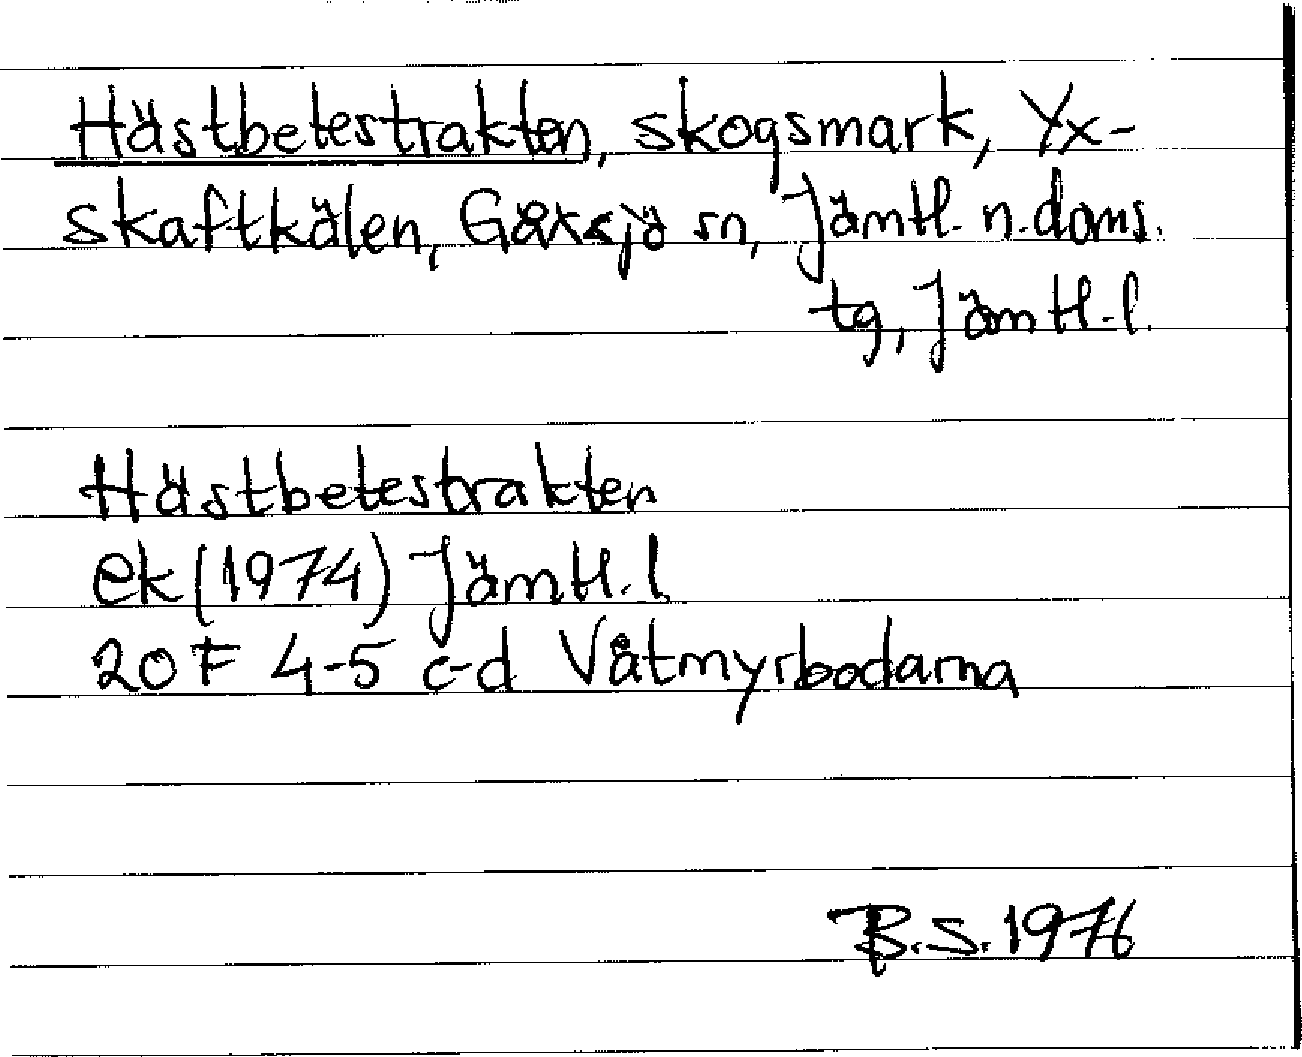 Hästbetestrakten, skogsmark, Yx-
skaftkälen, Gåxsjö sn, Jämtl. n. doms.
tg, Jämtl. l.
Hästbetestrakten
ek (1974) Jämtl. l
20 F 4-5 c-d Våtmyrbodarna
B.S. 1976